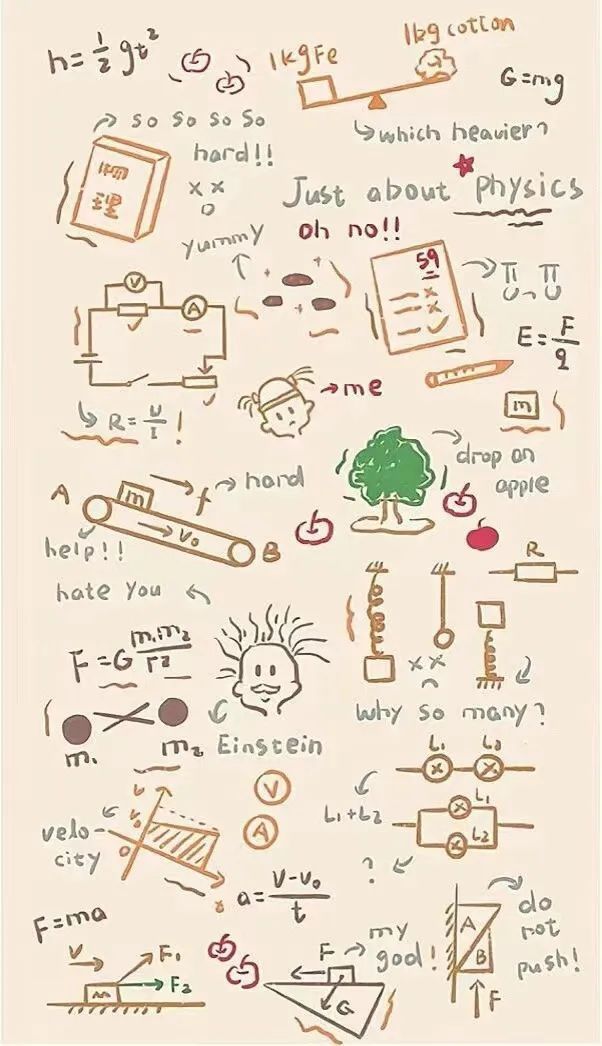 h = ½ gt²
1kg Fe
1kg cotton
G=mg
which heavier?
so so so so
hard!!
物
理
Just about physics
oh no!!
yummy
59
V
A
E = F/q
R = U/I !
me
m
drop on
apple
hard
A
m
f
V₀
B
help!!
hate you
R
F = G m₁m₂/r²
m₁
m₂
Einstein
why so many?
L₁
L₂
L₁+L₂
L₁
L₂
?
velo-
city
v
v₀
0
V
A
a = V-V₀/t
F=ma
V
F₁
F₂
m
F
G
my
god!
A
B
F
do
not
push!